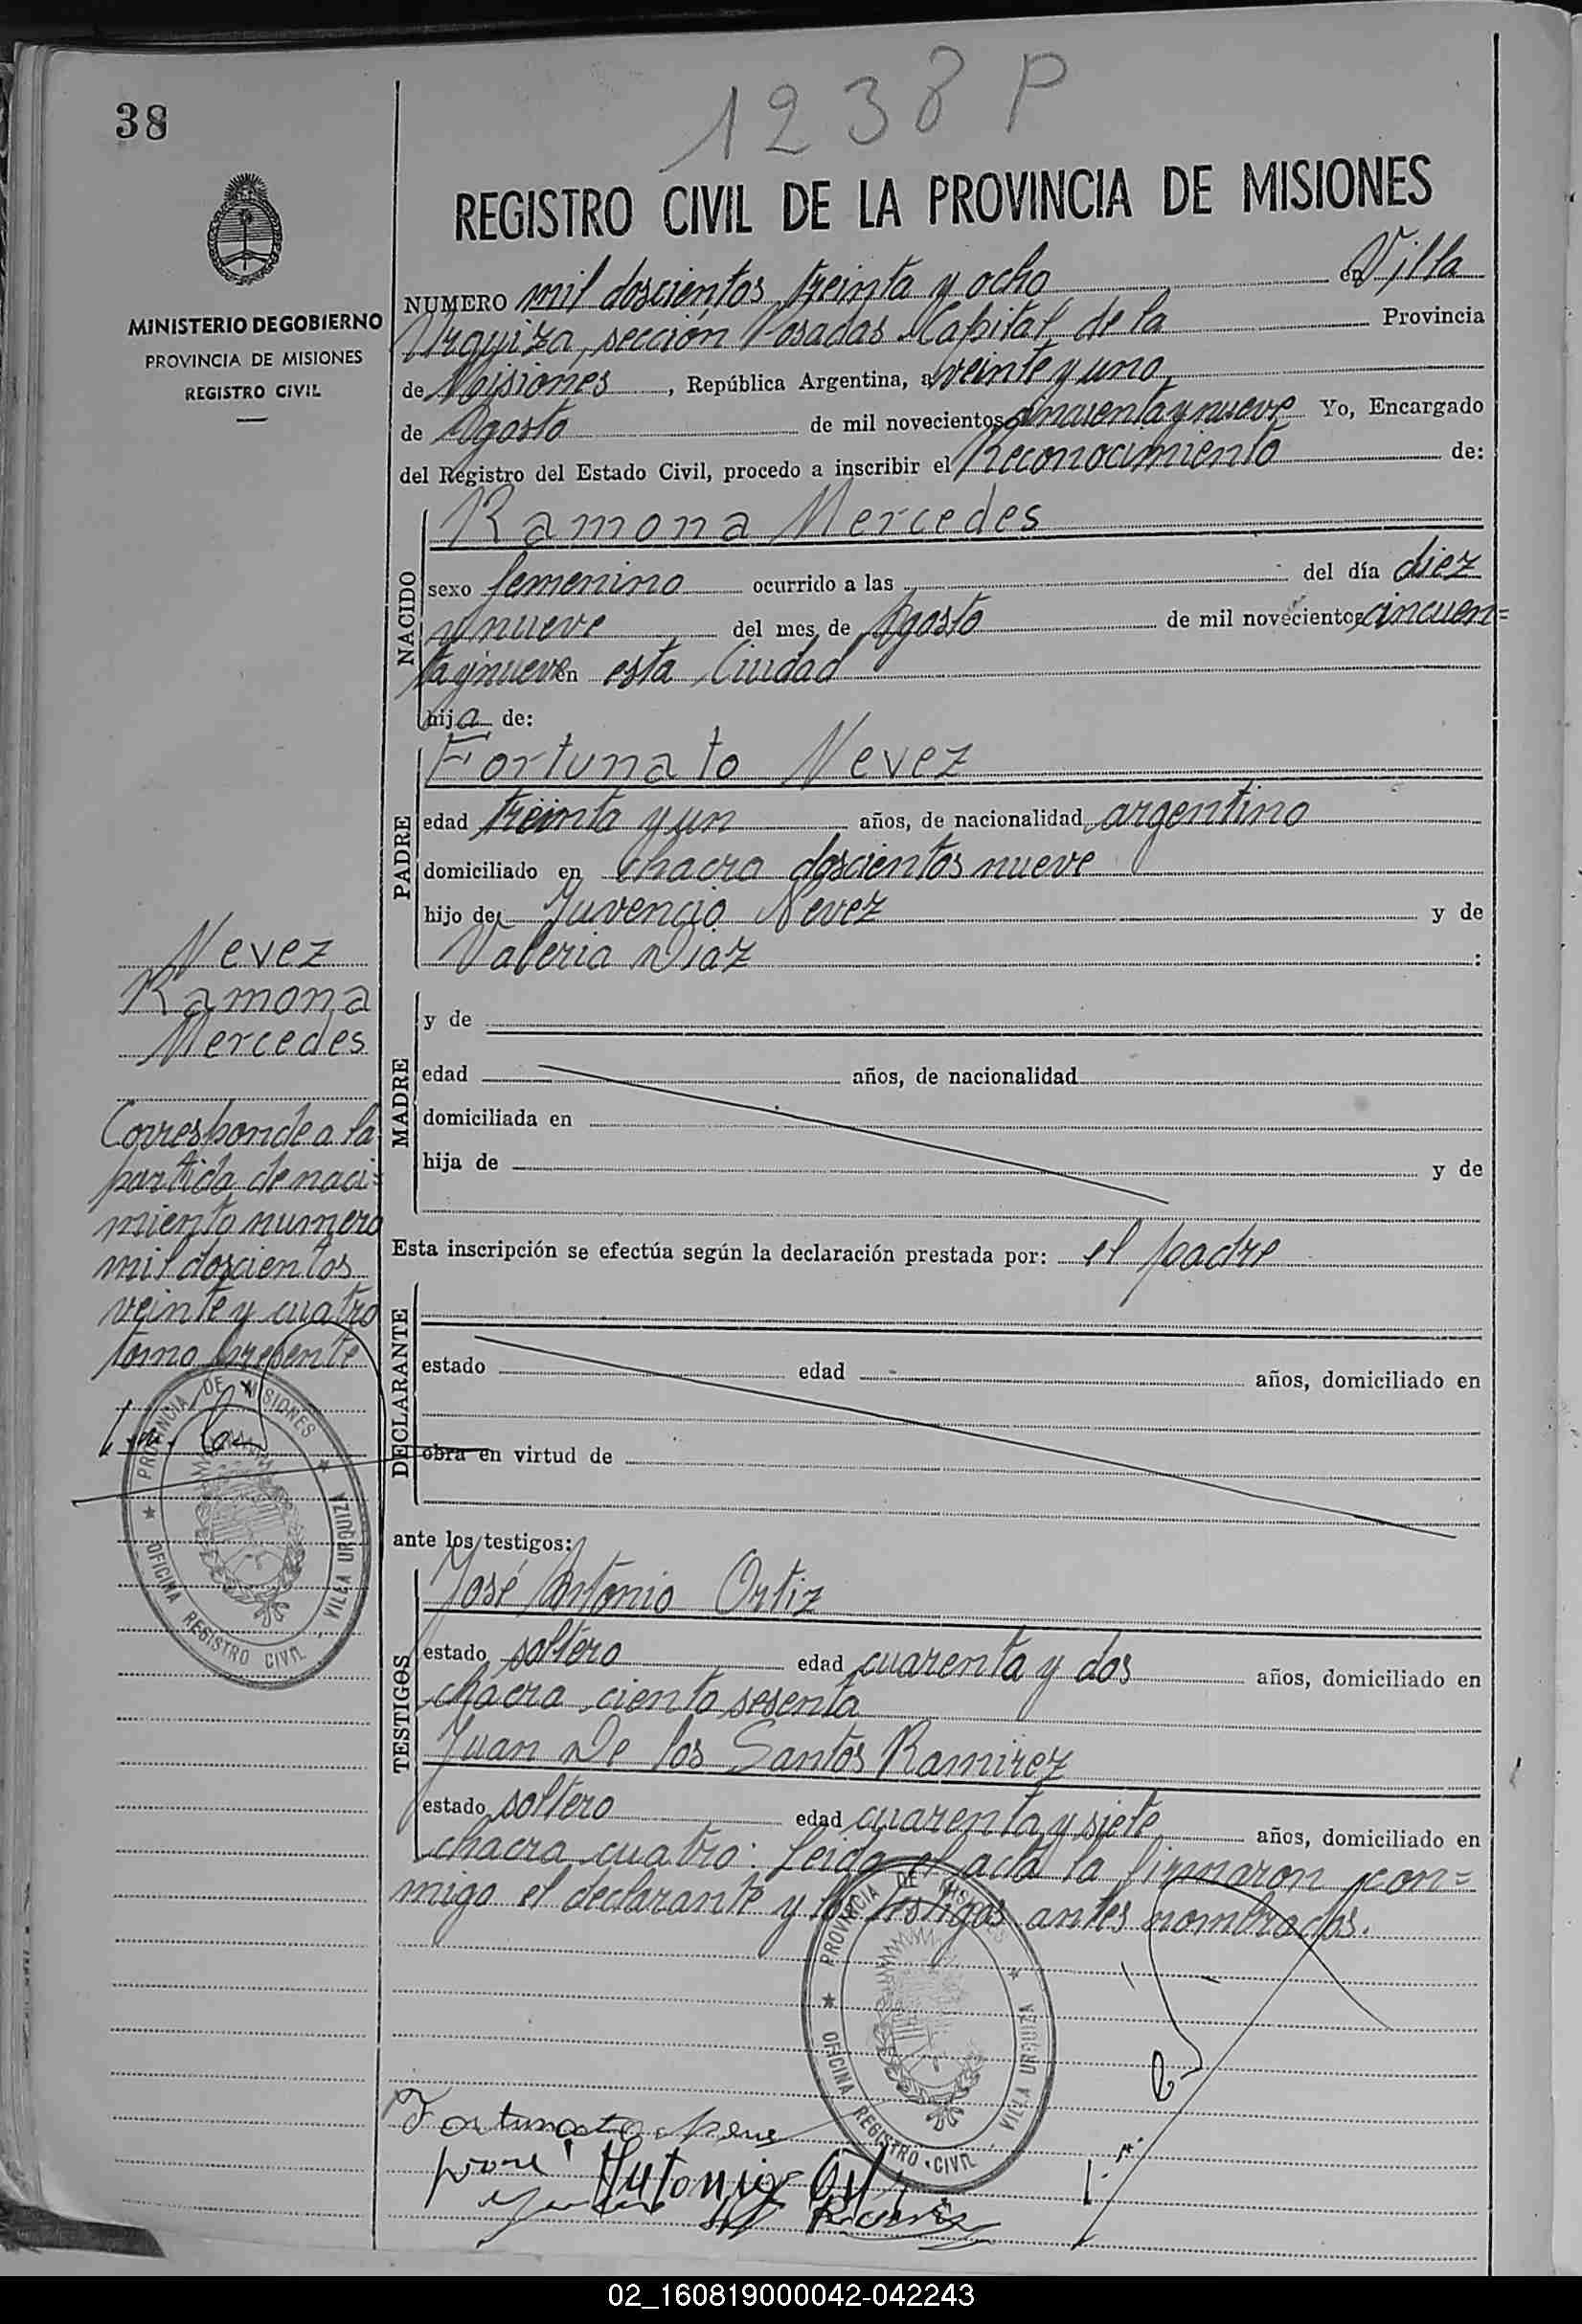 1238 P
38
REGISTRO CIVIL DE LA PROVINCIA DE MISIONES
MINISTERIO DE GOBIERNO
PROVINCIA DE MISIONES
REGISTRO CIVIL
NUMERO mil doscientos treinta y ocho en Villa
Urquiza, sección Posadas Capital de la Provincia
de Misiones, República Argentina, a veinte y uno
de Agosto de mil novecientos cincuenta y nueve Yo, Encargado
del Registro del Estado Civil, procedo a inscribir el Reconocimiento de:
NACIDO
Ramona Mercedes
sexo femenino ocurrido a las del día diez
y nueve del mes de Agosto de mil novecientos cincuen=
ta y nueve en esta Ciudad
hija de:
PADRE
Fortunato Nevez
edad treinta y un años, de nacionalidad argentino
domiciliado en chacra doscientos nueve
hijo de Juvencio Nevez y de
Valeria Diaz :
Nevez
Ramona
Mercedes
Corresponde a la
partida de naci=
miento numero
mil doscientos
veinte y cuatro
tomo presente
PROVINCIA DE MISIONES
OFICINA REGISTRO CIVIL
VILLA URQUIZA
MADRE
y de
edad años, de nacionalidad
domiciliada en
hija de y de
Esta inscripción se efectúa según la declaración prestada por: el padre
DECLARANTE
estado edad años, domiciliado en
obra en virtud de
ante los testigos:
TESTIGOS
José Antonio Ortiz
estado soltero edad cuarenta y dos años, domiciliado en
chacra ciento sesenta
Juan De los Santos Ramirez
estado soltero edad cuarenta y siete años, domiciliado en
chacra cuatro: Leida el acta la firmaron con=
migo el declarante y los testigos antes nombrados.
PROVINCIA DE MISIONES
OFICINA REGISTRO CIVIL
VILLA URQUIZA
Fortunato
Antonio
02_160819000042-042243